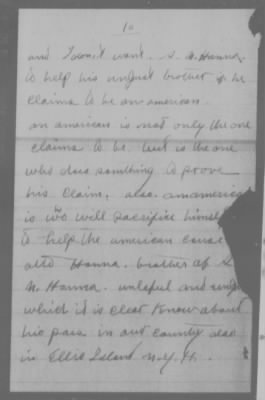 10
and I don't want. S. N. Hanna.
to help his unjust brother & he
claims to be an american.
an american is not only the one
claims to be. but is the one
who does somthing to prove
his claim. also. an america
is who will sacrifice himsel
to help the american
Hanna. brother of S.
N. Hanna. unlaful and unju
which it is clear Know about
his pass in out county also
in Ellis Island. N.Y.